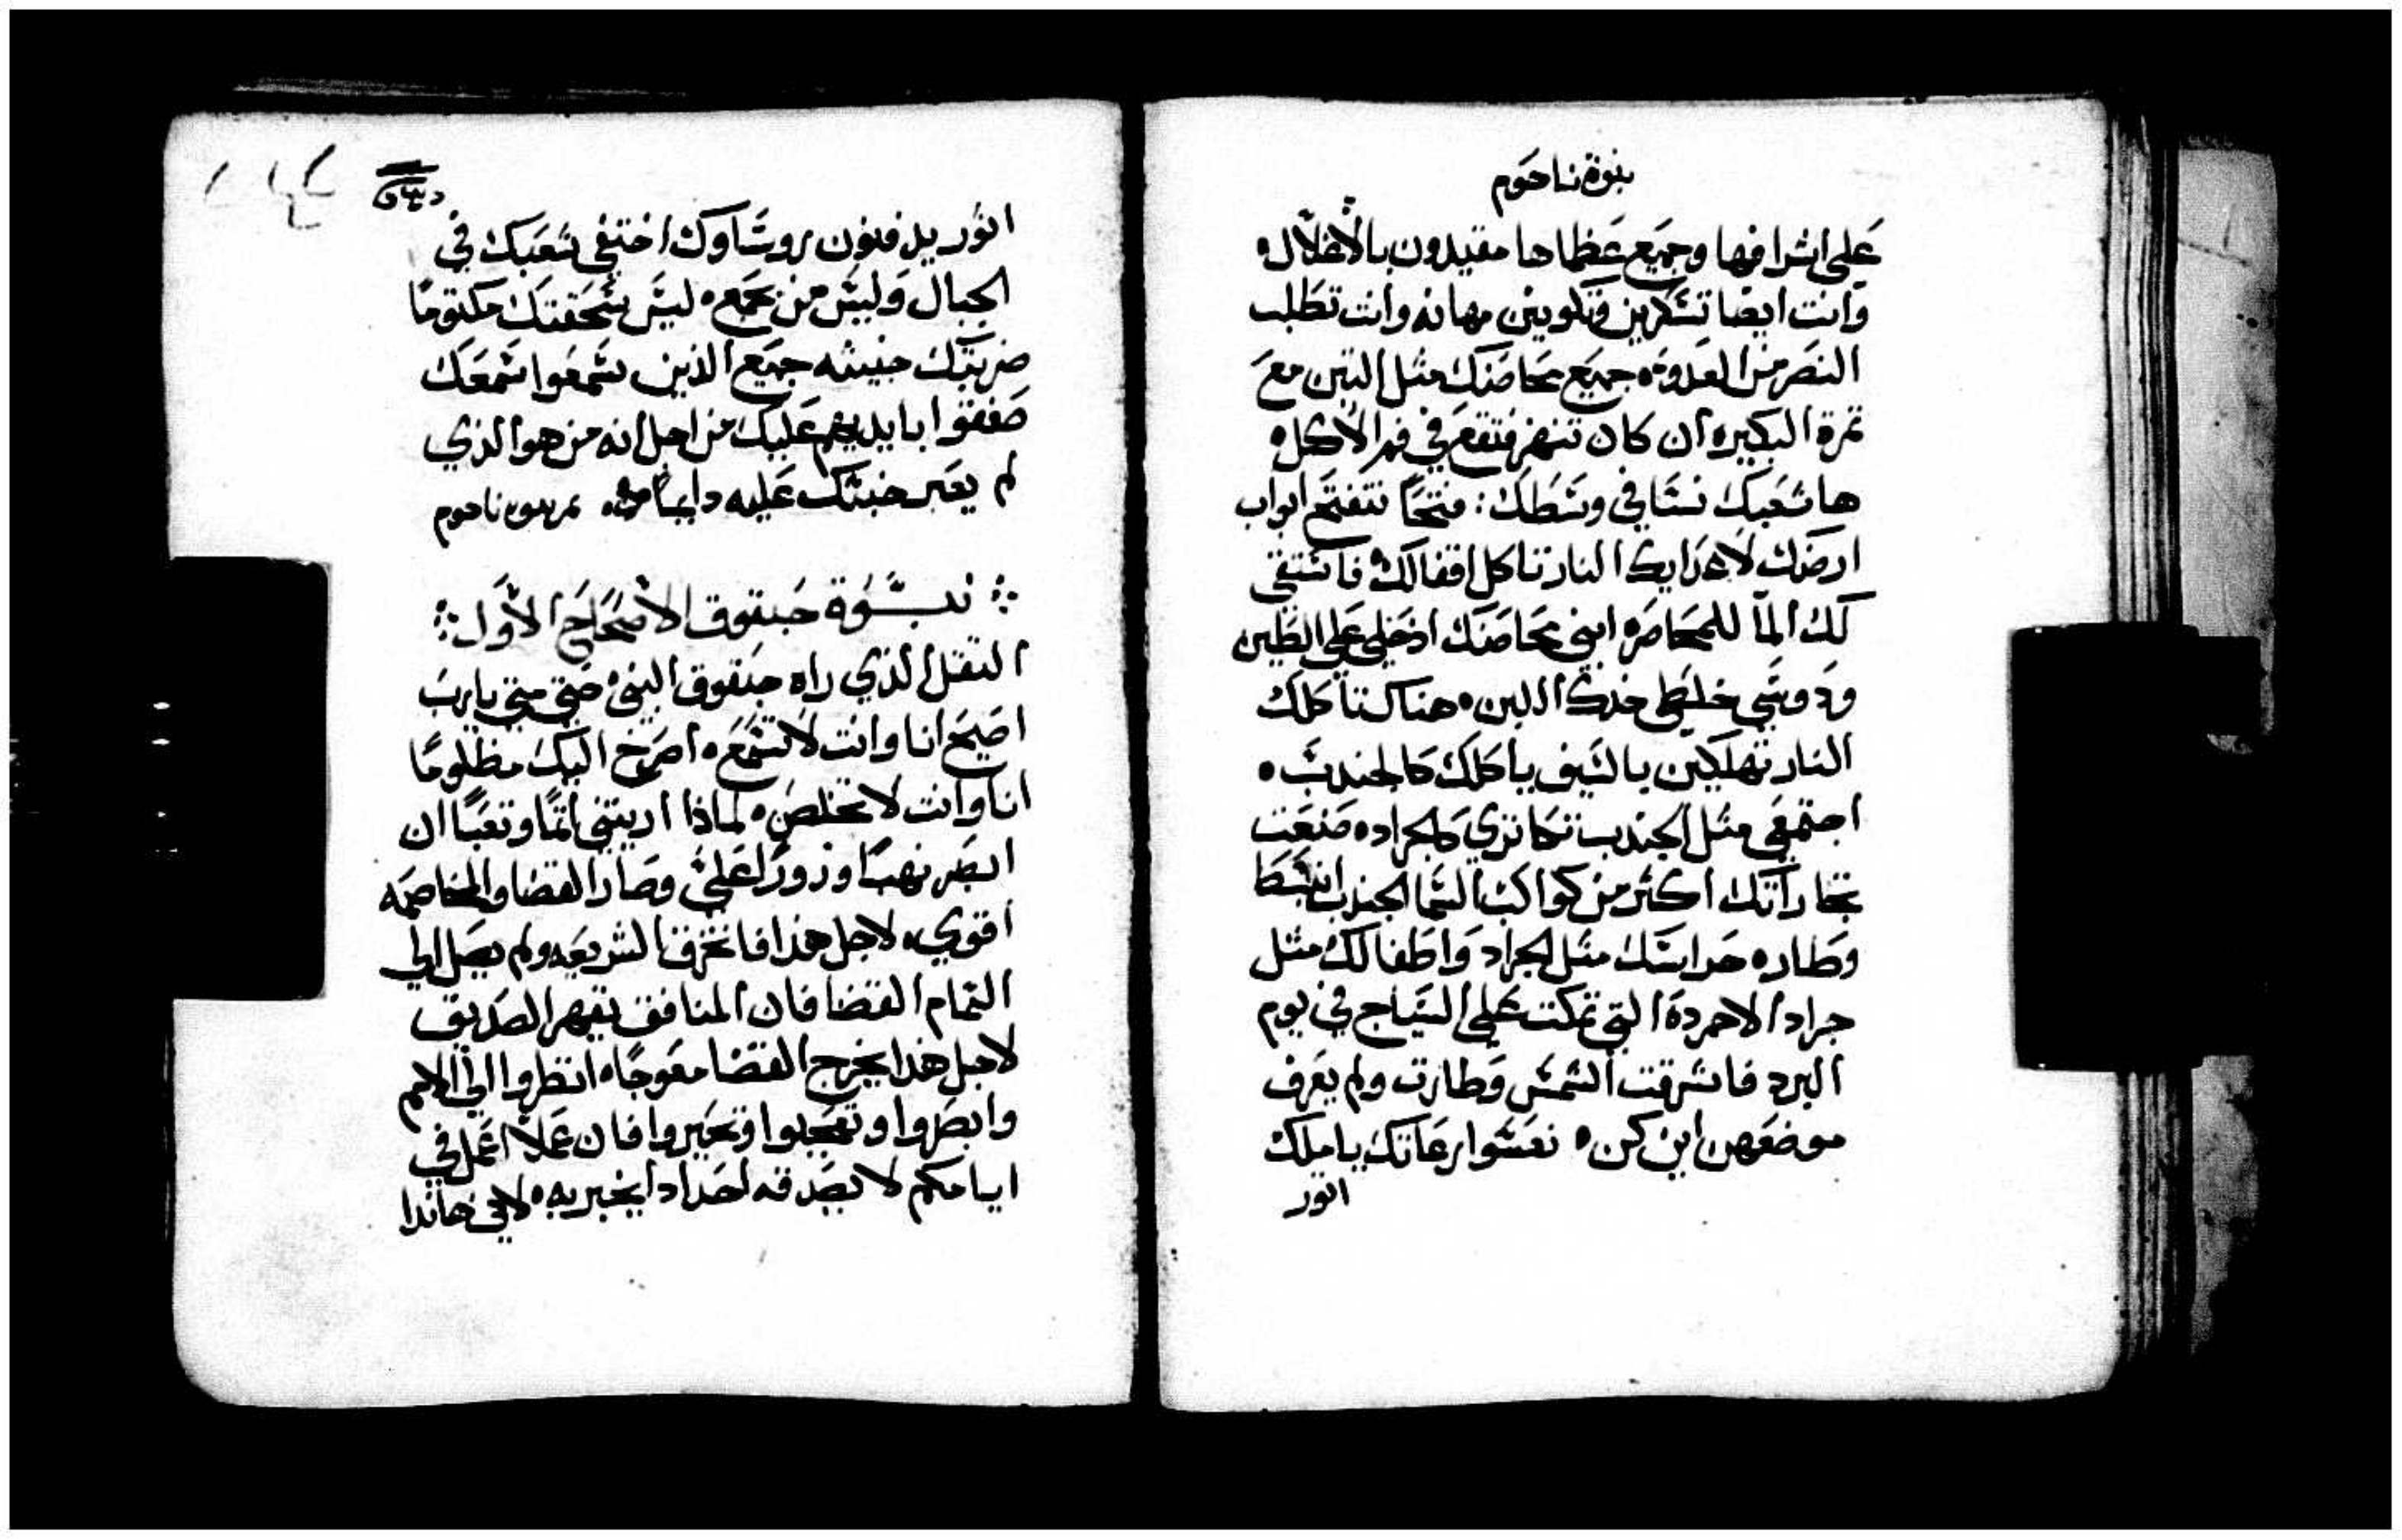 نبوة ناحوم
علي اشرافها وجميع عظماها مقيدون بالاغلال ه
وانت ايضا تسكرين وتكوين مهانه وانت تطلب
النصر من العدو ه جميع محاصنك مثل التين مع
ثمرة البكيره ان كان تنهز فتقع في فم الاكل ه
ها شعبك نسا في وسطك : فتحًا تتفتح ابواب
ارضك لاعدايك النار تاكل اقفالك فاستقي
لك الما للمحاصره ابني محاصنك ادخلي علي الطين
ودوسي خليطي خدي اللبن ه هناك تاكلك
النار تهلكين بالسيف ياكلك كالجندب ه
اجتمعي مثل الجندب تكاثري كالجراد ه صنعت
تجاراتك اكثر من كواكب السما الجندب انبسط
وطار ه حراسك مثل الجراد واطفالك مثل
جراد الاجردة التي تمكت علي السياج في يوم
البرد فاشرقت الشمس وطارت ولم يعرف
موضعهن اين كن ه نعسوا رعاتك يا ملك
اتور
اتور يدفنون روساوك اختفي شعبك في
الجبال وليس من يجمع ه ليس سحقتك مكتومًا
ضربتك خبيثه جميع الذين سمعوا سمعك
صفقوا بايديهم عليك من اجل انه من هو الذي
لم يعبر خبثك عليه دايمًا ناحوم
نبوة حبقوق الاصحاح الاول
الثقل الذي راه حبقوق النبي ه حتي متي يارب
اصيح انا وانت لا تسمع ه اصرخ اليك مظلومًا
انا وانت لا تخلص ه لماذا اريتني اثمًا وتعبًا ان
ابصر نهبًا وزورًا علي وصار القضا والمخاصمه
اقوي ه لاجل هذا فانخرقت الشريعه ولم يصل الي
التمام القضا فان المنافق يقهر الصديق
لاجل هذا يخرج القضا معوجًا ه انظروا الي الامم
وابصروا وتعجبوا وتحيروا فان عملًا اعمل في
ايامكم لا يصدقه احد اذا يخبر به ه لاني هاندا